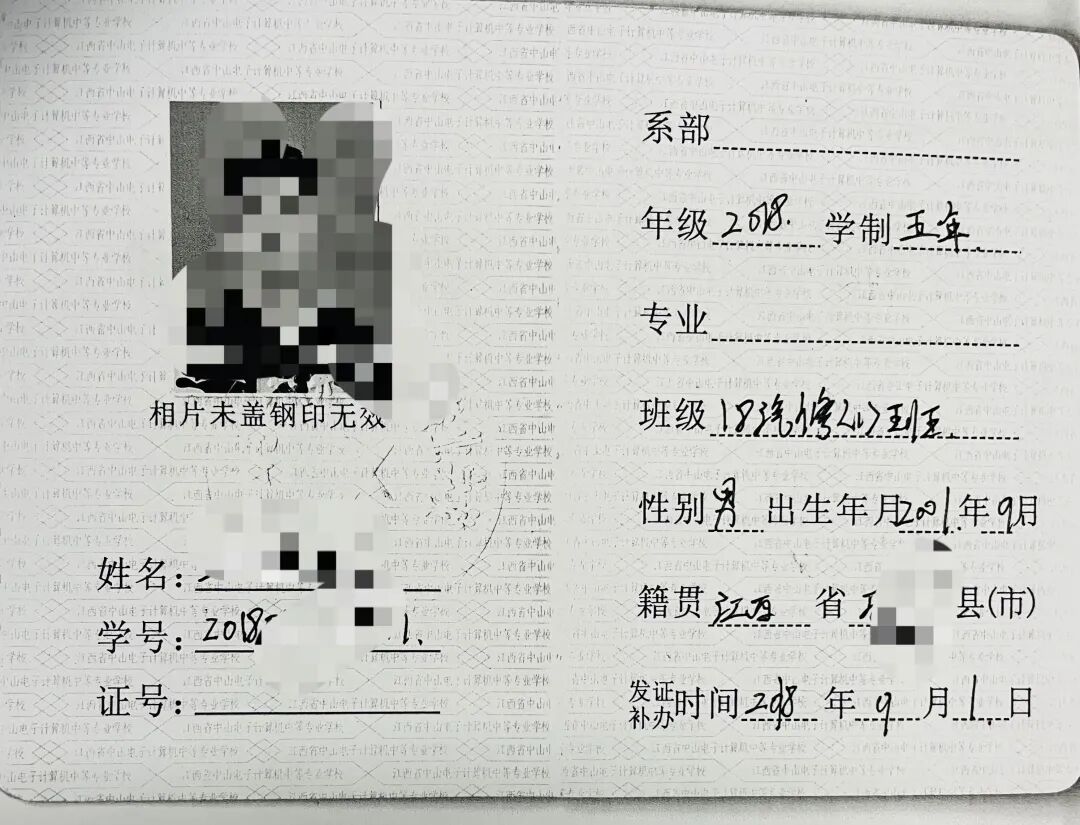 江西省中山电子计算机中等专业学校
相片未盖钢印无效
姓名：
学号：2018. 1.
证号：
系部
年级 2018. 学制 五年.
专业
班级 18汽修<1>班.
性别 男 出生年月 2001.年 9月
籍贯 江西 省 县(市)
发证补办时间 2018 年 9 月 1. 日